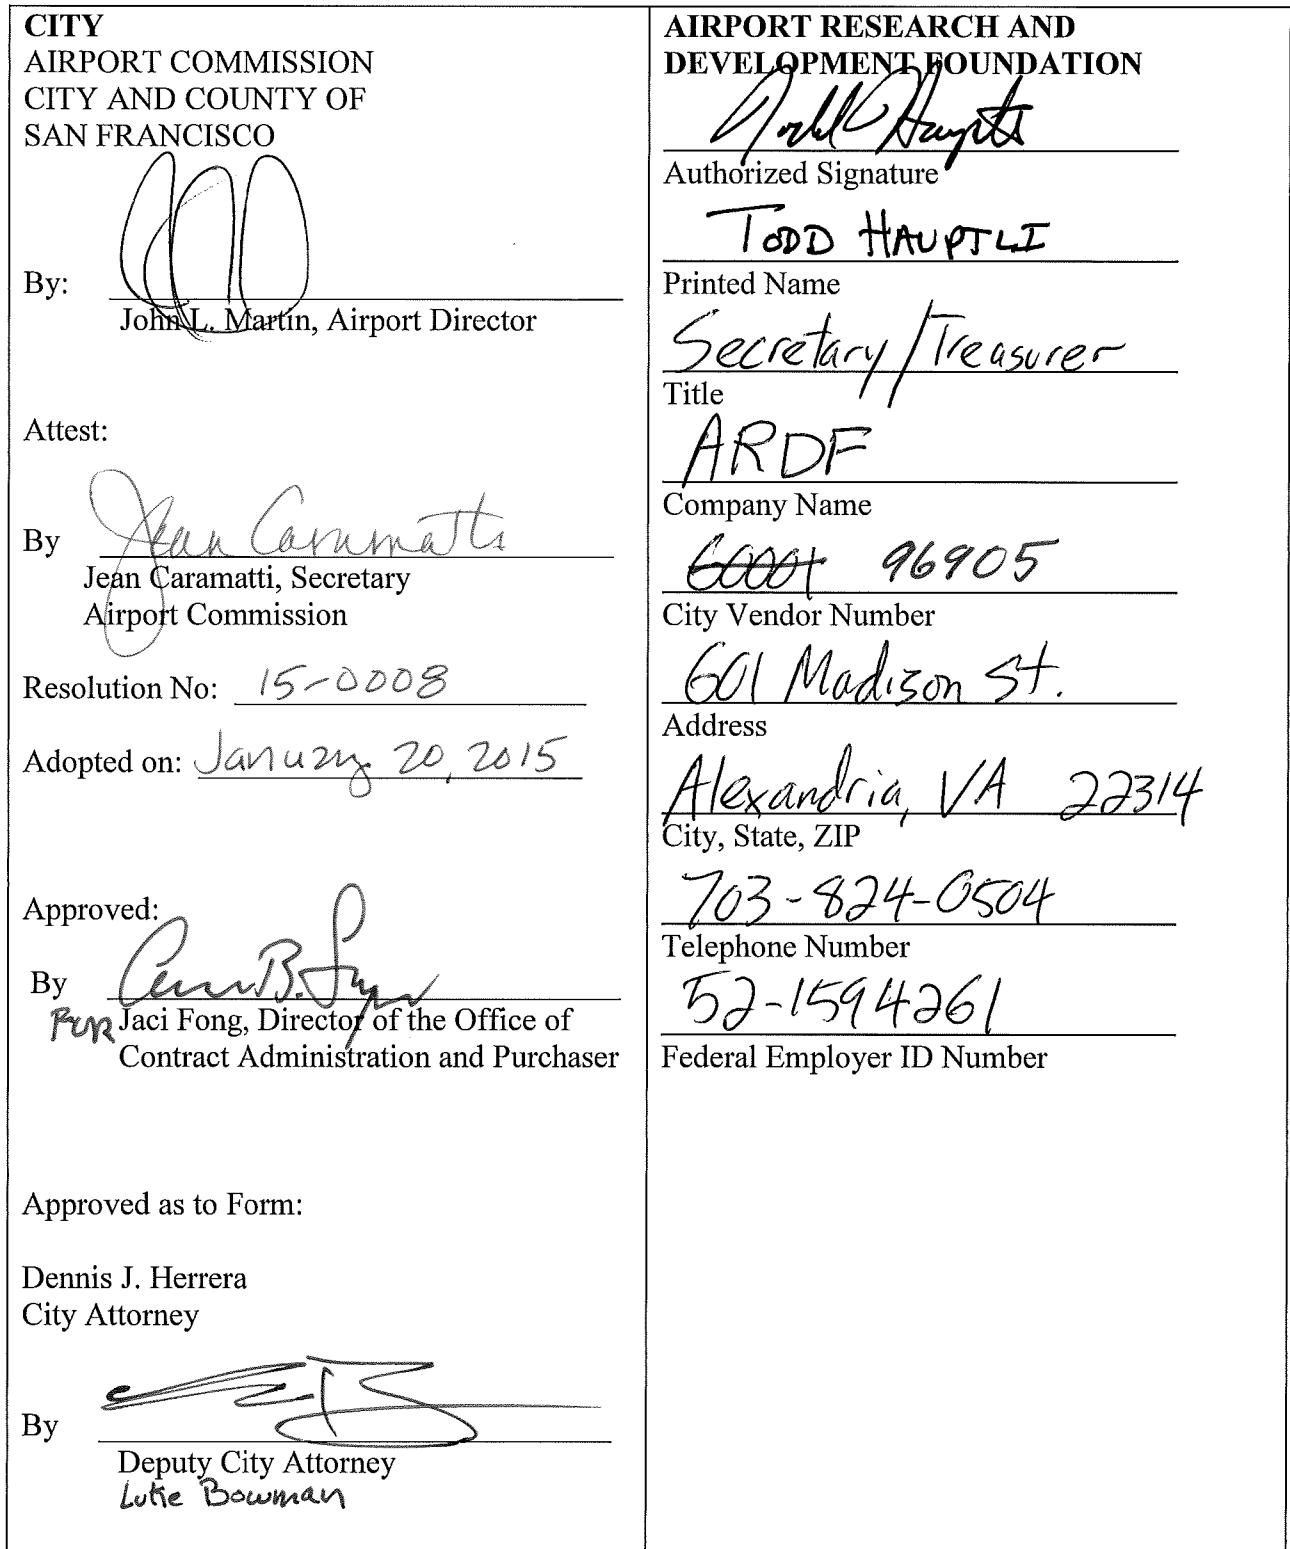 CITY
AIRPORT COMMISSION
CITY AND COUNTY OF
SAN FRANCISCO
By:
John L. Martin, Airport Director
Attest:
By Jean Caramatti
Jean Caramatti, Secretary
Airport Commission
Resolution No: 15-0008
Adopted on: January 20, 2015
Approved:
By
FOR Jaci Fong, Director of the Office of
Contract Administration and Purchaser
Approved as to Form:
Dennis J. Herrera
City Attorney
By
Deputy City Attorney
Luke Bowman
AIRPORT RESEARCH AND
DEVELOPMENT FOUNDATION
Todd Hauptli
Authorized Signature
TODD HAUPTLI
Printed Name
Secretary/Treasurer
Title
ARDF
Company Name
96905
City Vendor Number
601 Madison St.
Address
Alexandria, VA 22314
City, State, ZIP
703-824-0504
Telephone Number
52-1594261
Federal Employer ID Number